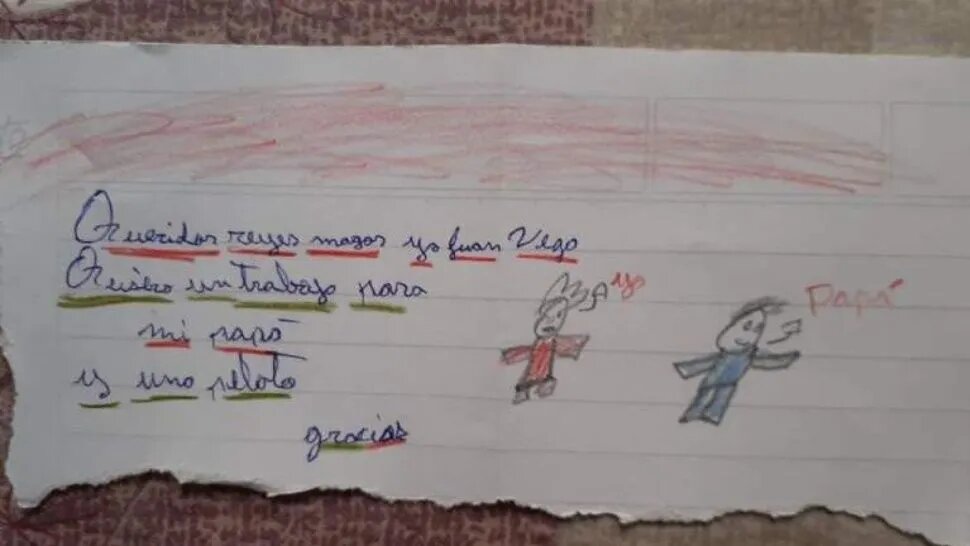 Queridos reyes magos yo Juan Vega
Quisiero un trabajo para
mi papá
y una pelota
gracias
yo
Papá